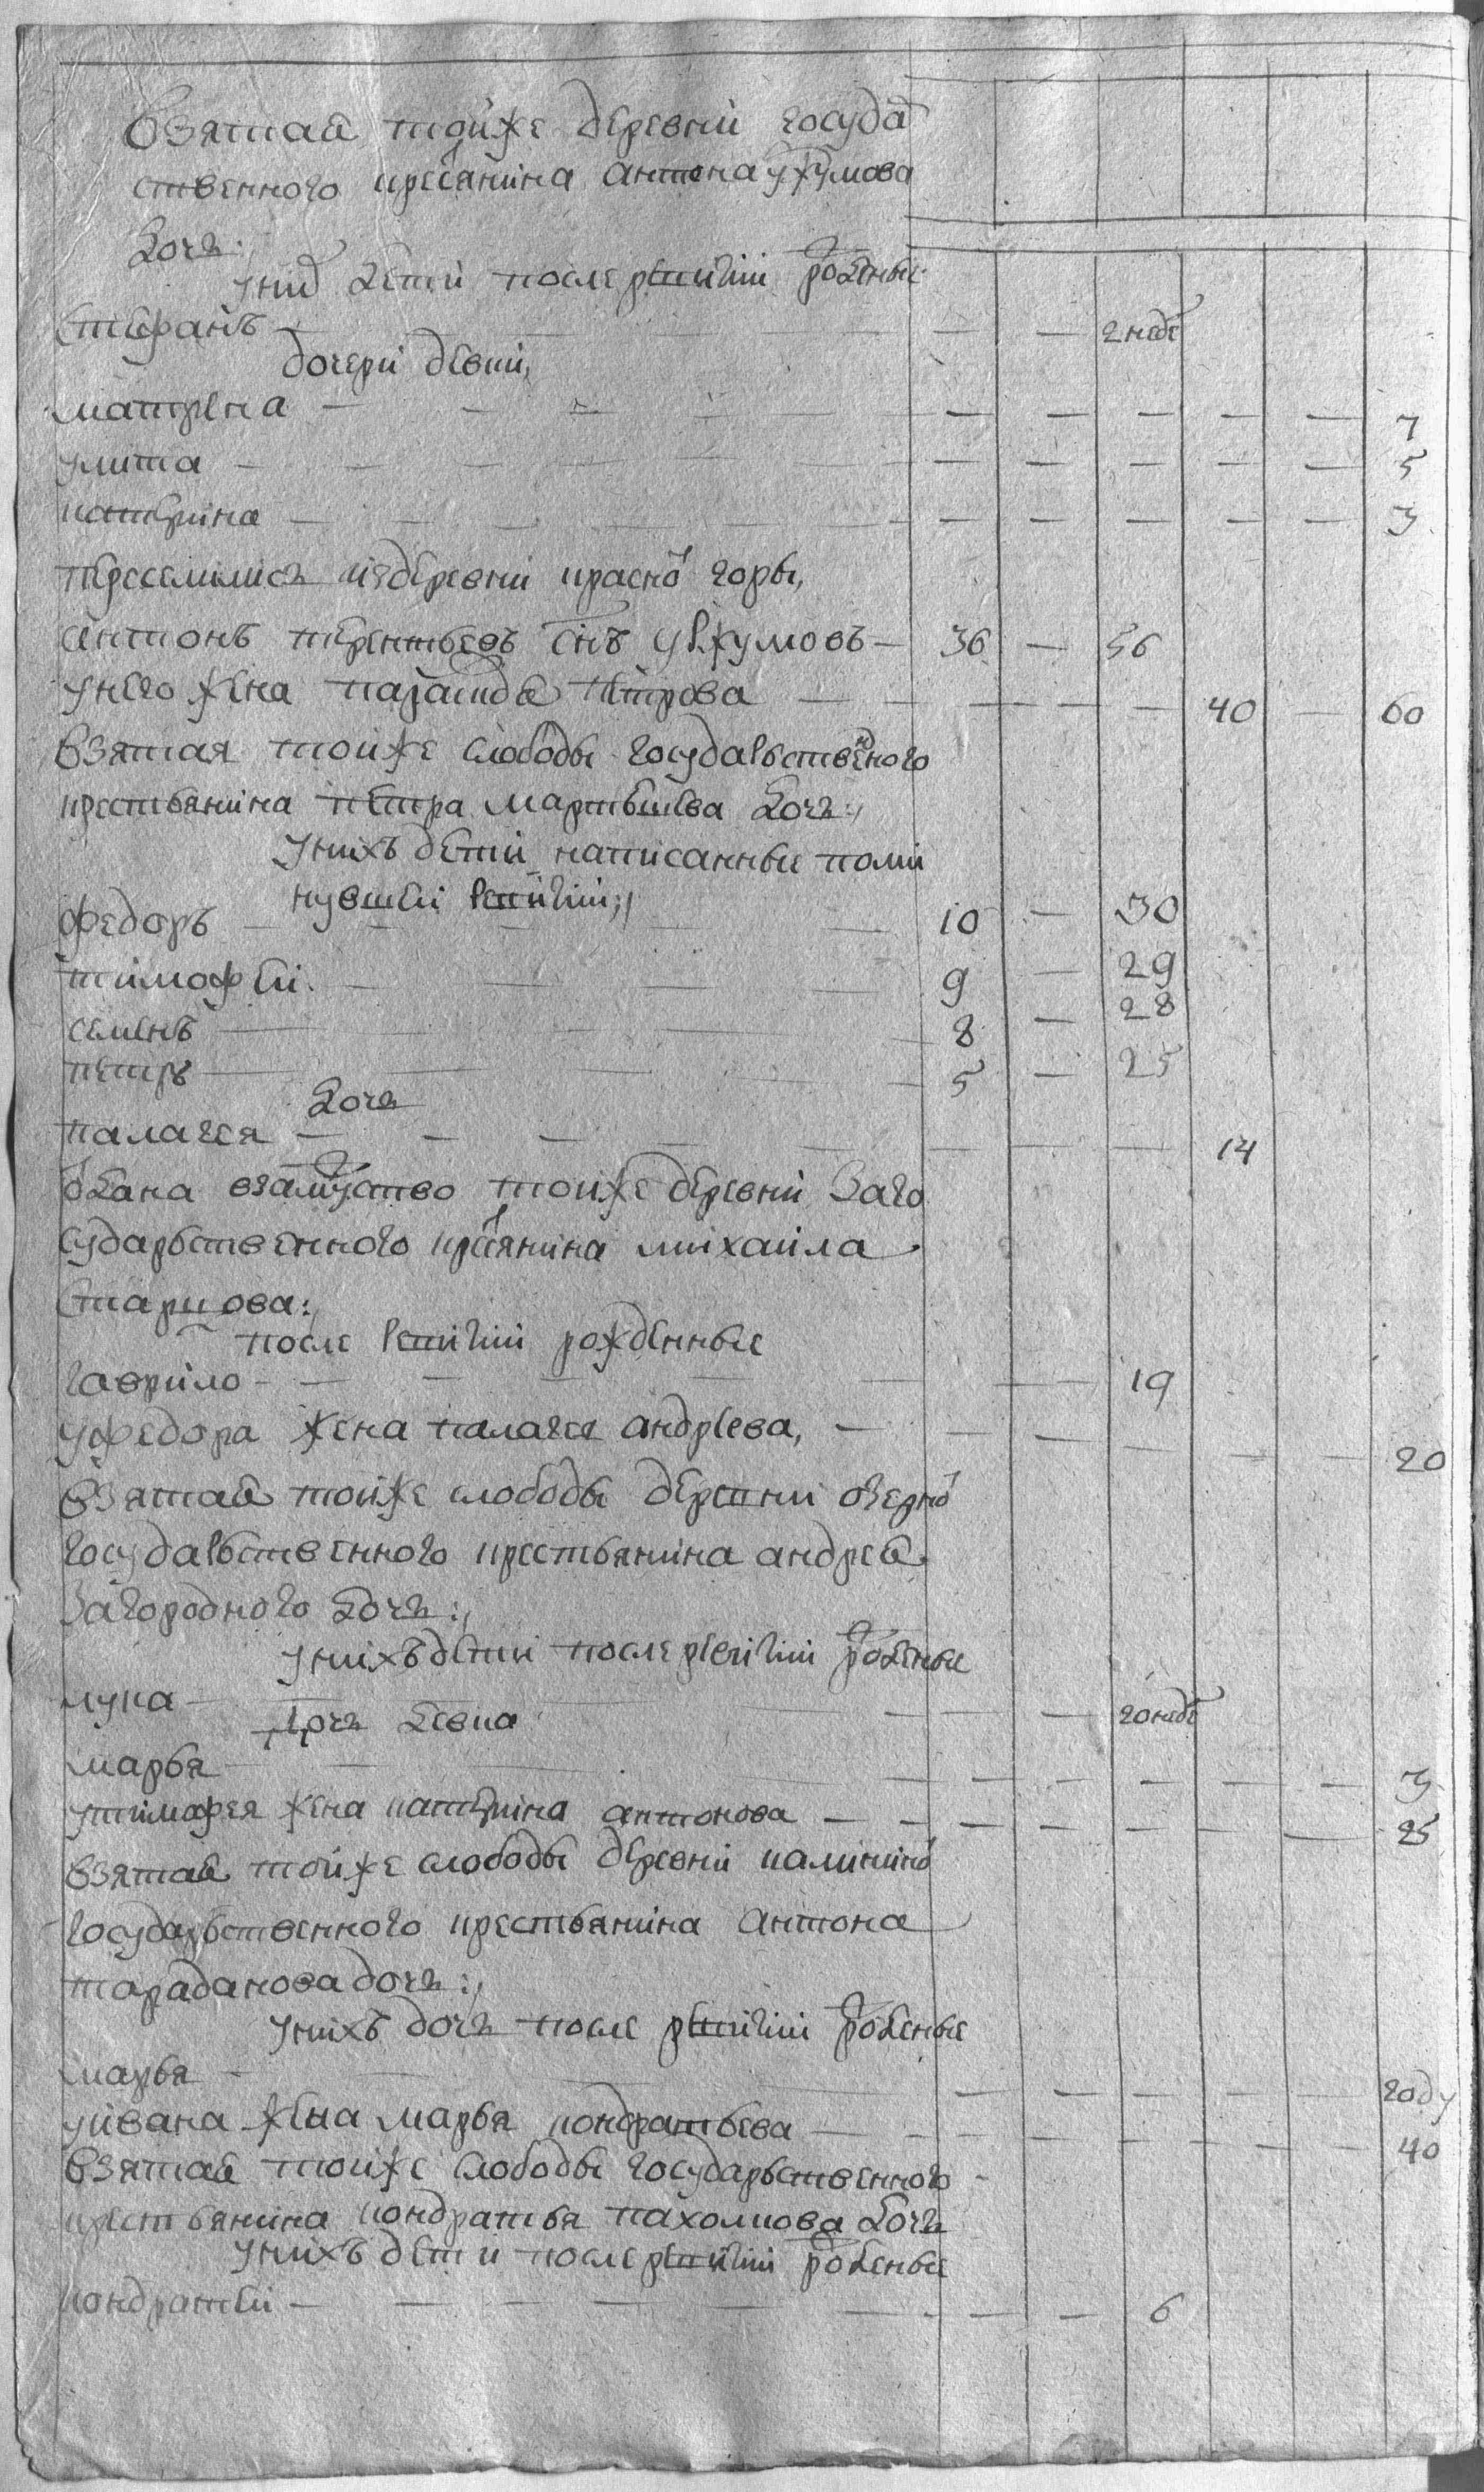 взятая тойже деревни госуда
ственного кресянина антона ужумова
дочь:
у них детей после ревизии рожденые
Стефанъ — — — — — — 2 неде
дочери девки,
матрена — — — — — — — — — 7
улита — — — — — — — — — 5
катерина — — — — — — — — — 3
переселились издеревни красно горы,
антонъ терентьевъ снъ увжумовъ — 36 — 56
унего жена парасковья петрова — — — — — 40 — 60
взятая тойже слободы государьственого
крестьянина петра мартьшева дочь:
унихъ дети написанные поми
нувшей ревизии;
федоръ — — — — — 10 — 30
тимофеи — — — — 9 — 29
семенъ — — — — 8 — 28
петръ — — — — 5 — 25
дочь
палагея — — — — — — — — 14
одана взамуство тойже деревни Заго
сударьственного кресянина михаила
Старцова:
после ревизии рожденные
гаврило — — — — — — — 19
уфедора жена палагея андреева, — — — — — 20
взятая тойже слободы деревни озерно
государьственного крестьянина андрея
Загородного дочь:
унихъ дети после ревизии рожденые
лука — — — — — — 20 неде
дочь девка
марья — — — — — — — — — 3
утимофея жена катерина антонова — — — — — — — 25
взятая тойже слободы деревни калинино
государьственного крестьянина антона
тараданова дочь:
унихъ дочь после ревизии рожденые
марья — — — — — — — — году
уивана жена марья кондратьева — — — — — — 40
взятая тойже слободы государьственного
крестьянина кондратья пахомкова дочь
унихъ дети после ревизии рожденые
кондратеи — — — — — — — — 6